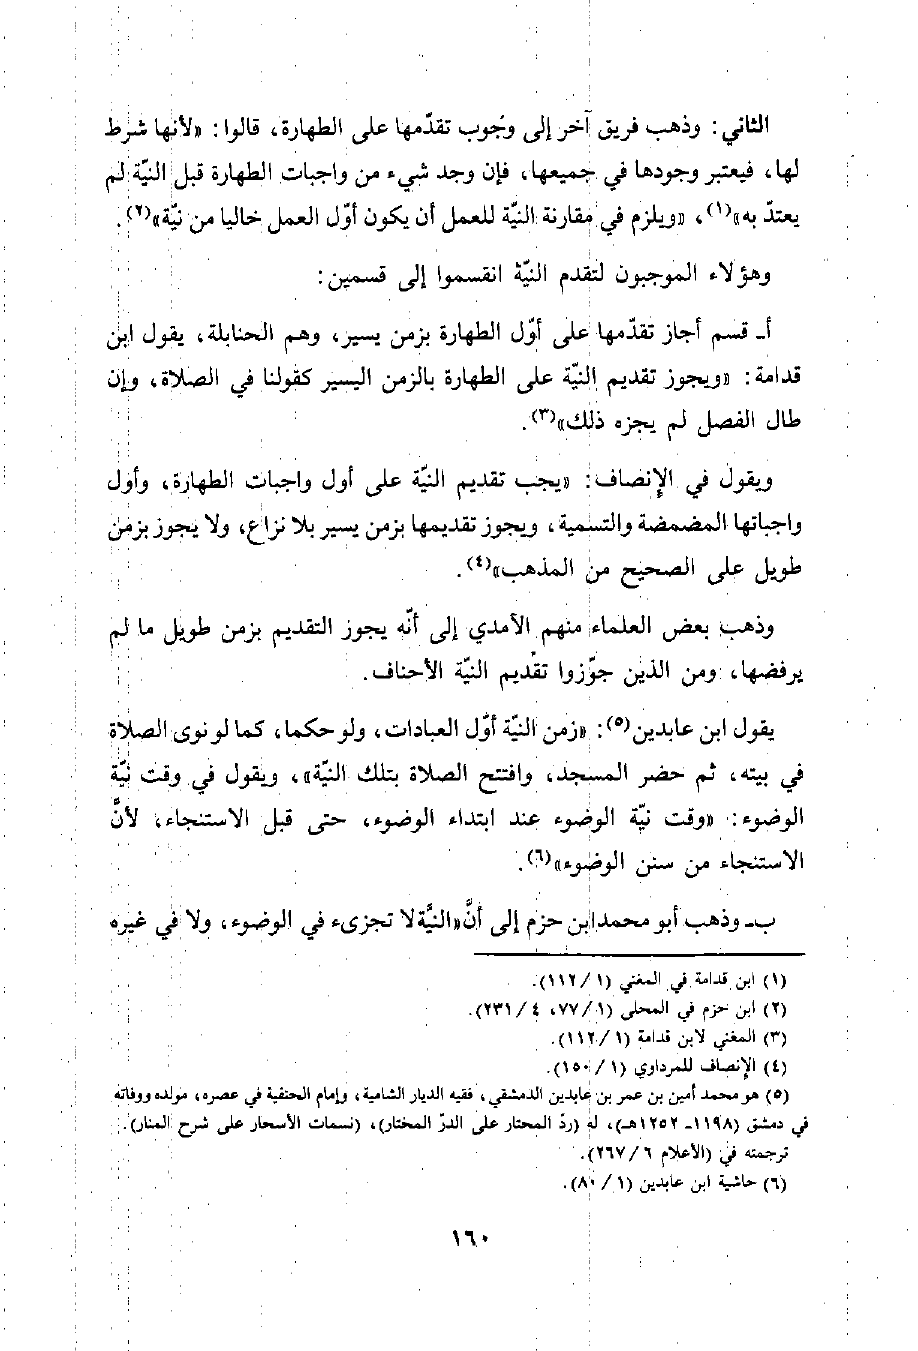 الثاني: وذهب فريق آخر إلى وجُوب تقدّمها على الطهارة، قالوا: «لأنها شرط
لها، فيعتبر وجودها في جميعها، فإن وجد شيء من واجبات الطهارة قبل النيّة لم
يعتدّ به»(١)، «ويلزم في مقارنة النيّة للعمل أن يكون أوّل العمل خاليا من نيّة»(٢).
وهؤلاء الموجبون لتقدم النيّة انقسموا إلى قسمين:
أ- قسم أجاز تقدّمها على أوّل الطهارة بزمن يسير، وهم الحنابلة، يقول ابن
قدامة: «ويجوز تقديم النيّة على الطهارة بالزمن اليسير كقولنا في الصلاة، وإن
طال الفصل لم يجزه ذلك»(٣).
ويقول في الإنصاف: «يجب تقديم النيّة على أول واجبات الطهارة، وأول
واجباتها المضمضة والتسمية، ويجوز تقديمها بزمن يسير بلا نزاع، ولا يجوز بزمن
طويل على الصحيح من المذهب»(٤).
وذهب بعض العلماء منهم الأمدي إلى أنّه يجوز التقديم بزمن طويل ما لم
يرفضها، ومن الذين جوّزوا تقديم النيّة الأحناف.
يقول ابن عابدين(٥): «زمن النيّة أوّل العبادات، ولو حكما، كما لو نوى الصلاة
في بيته، ثم حضر المسجد، وافتتح الصلاة بتلك النيّة»، ويقول في وقت نيّة
الوضوء: «وقت نيّة الوضوء عند ابتداء الوضوء، حتى قبل الاستنجاء، لأنَّ
الاستنجاء من سنن الوضوء»(٦).
ب- وذهب أبو محمد ابن حزم إلى أنَّ «النيَّة لا تجزىء في الوضوء، ولا في غيره
(١) ابن قدامة في المغني (١/ ١١٢).
(٢) ابن حزم في المحلى (١/ ٧٧، ٤/ ٢٣١).
(٣) المغني لابن قدامة (١/ ١١٢).
(٤) الإنصاف للمرداوي (١/ ١٥٠).
(٥) هو محمد أمين بن عمر بن عابدين الدمشقي، فقيه الديار الشامية، وإمام الحنفية في عصره، مولده ووفاته
في دمشق (١١٩٨- ١٢٥٢هـ)، له (ردّ المحتار على الدرّ المختار)، (نسمات الأسحار على شرح المنار).
ترجمته في (الأعلام ٦/ ٢٦٧).
(٦) حاشية ابن عابدين (١/ ٨٠).
١٦٠